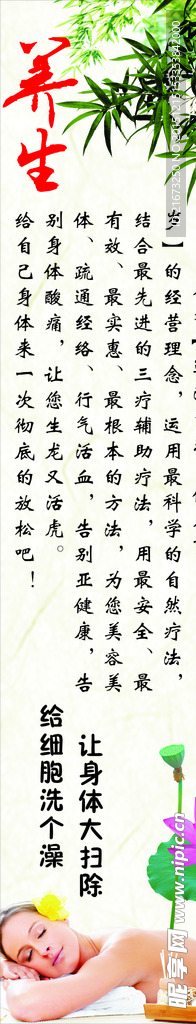 养生
】的经营理念，运用最科学的自然疗法，
结合最先进的三疗辅助疗法，用最安全、最
有效、最实惠、最根本的方法，为您美容美
体、疏通经络、行气活血，告别亚健康，告
别身体酸痛，让您生龙又活虎。
给自己身体来一次彻底的放松吧！
让身体大扫除
给细胞洗个澡
昵享网 www.nipic.cn